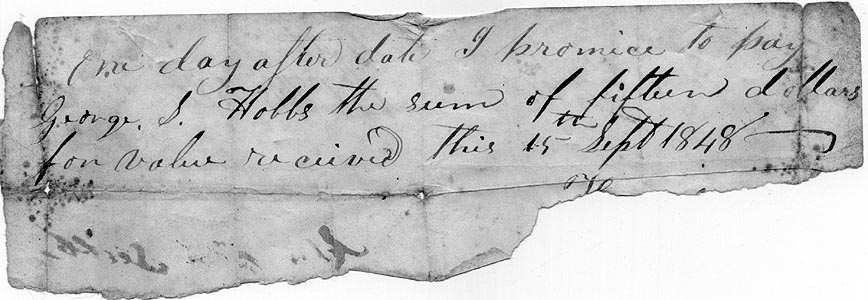 One day after date I promice to pay
George. S. Hobbs the sum of fifteen dollars
for value received this 15th Sept 1848